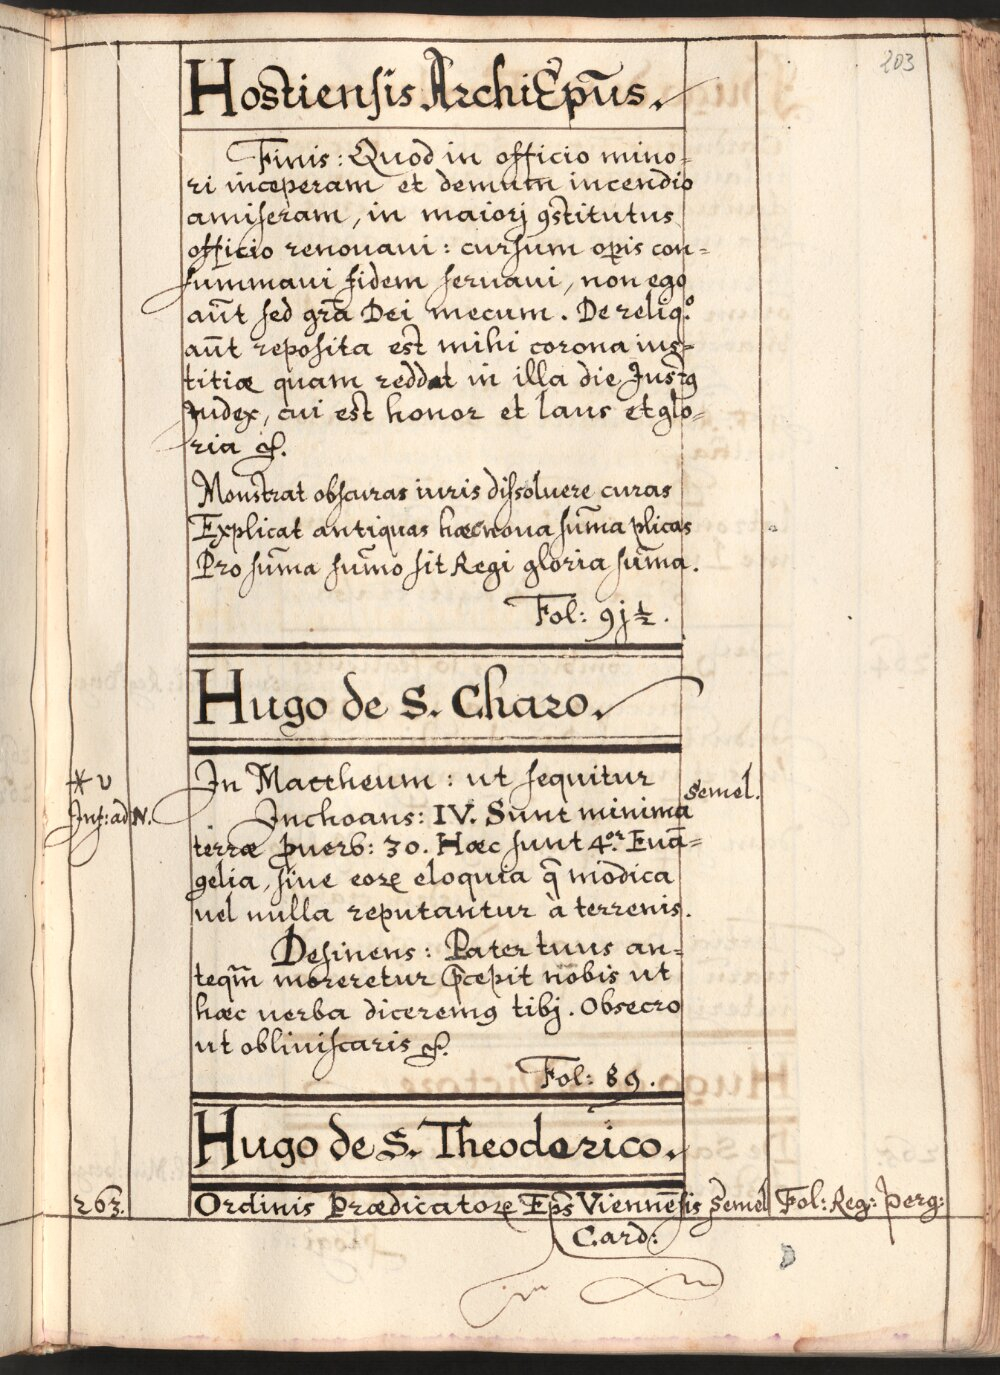 203
Hostiensis ArchiEpūs.
Finis: Quod in officio mino-
ri inceperam et demum incendio
amiseram, in maiorj 9stitutus
officio renouaui: cursum opis con-
summaui fidem seruaui, non ego
aūt sed grā Dei mecum. De reliq.º
aūt reposita est mihi corona ius-
titiæ quam reddet in illa die Just9
Judex, cui est honor et laus et glo-
ria &.
Monstrat obscuras iuris dissoluere curas
Explicat antiquas hæc noua sūma plicas
Pro sūma sūmo sit Regi gloria sūma.
Fol: 9j ½.
Hugo de S. Charo.
* v
Inf: ad N.
In Mattheum: ut sequitur semel.
Inchoans: IV. Sunt minima
terræ puerb: 30. Hæc sunt 4.or Euā=
gelia, siue eoꝝ eloquia q̄ modica
uel nulla reputantur à terrenis.
Desinens: Pater tuus an-
teqm̄ moreretur p̄cepit nobis ut
hæc uerba dicerem9 tibj. Obsecro
ut obliuiscaris &.
Fol: 89.
Hugo de S. Theodorico.
263. Ordinis Prædicatoꝝ Eps̄ Viennēsis semel Fol: Reg: perg:
Card: